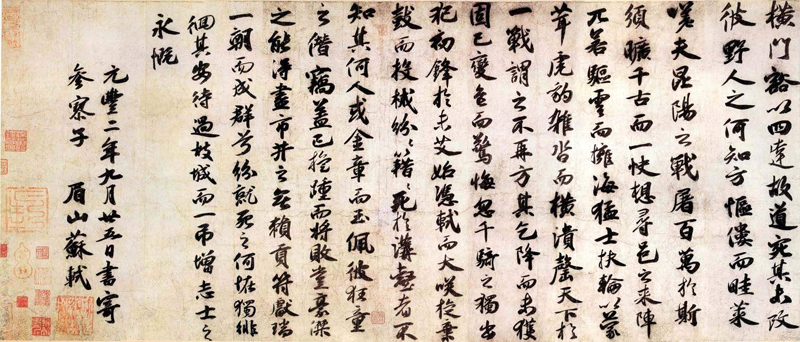 橫門豁以四達故道宛其未改
彼野人之何知方傴僂而畦菜
嗟夫昆陽之戰屠百萬於斯
須曠千古而一快想尋邑之来陣
兀若驅雲而擁海猛士扶輪以蒙
茸虎豹雜沓而橫潰罄天下於
一戰謂之不再方其乞降而未獲
固已變色而驚悔忽千騎之獨出
犯初鋒於未艾始憑軾而大咲旋棄
鼓而投械紛々籍々死於溝壑者不
知其何人或金章而玉佩彼狂童
之僭竊蓋已旋踵而將敗豈豪傑
之能得盡市井之无賴貢符獻瑞
一朝而成群兮紛就死之何怪獨徘
徊其安待過故城而一弔增志士之
永慨
元豐二年九月廿五日書寄
參寥子 眉山蘇軾